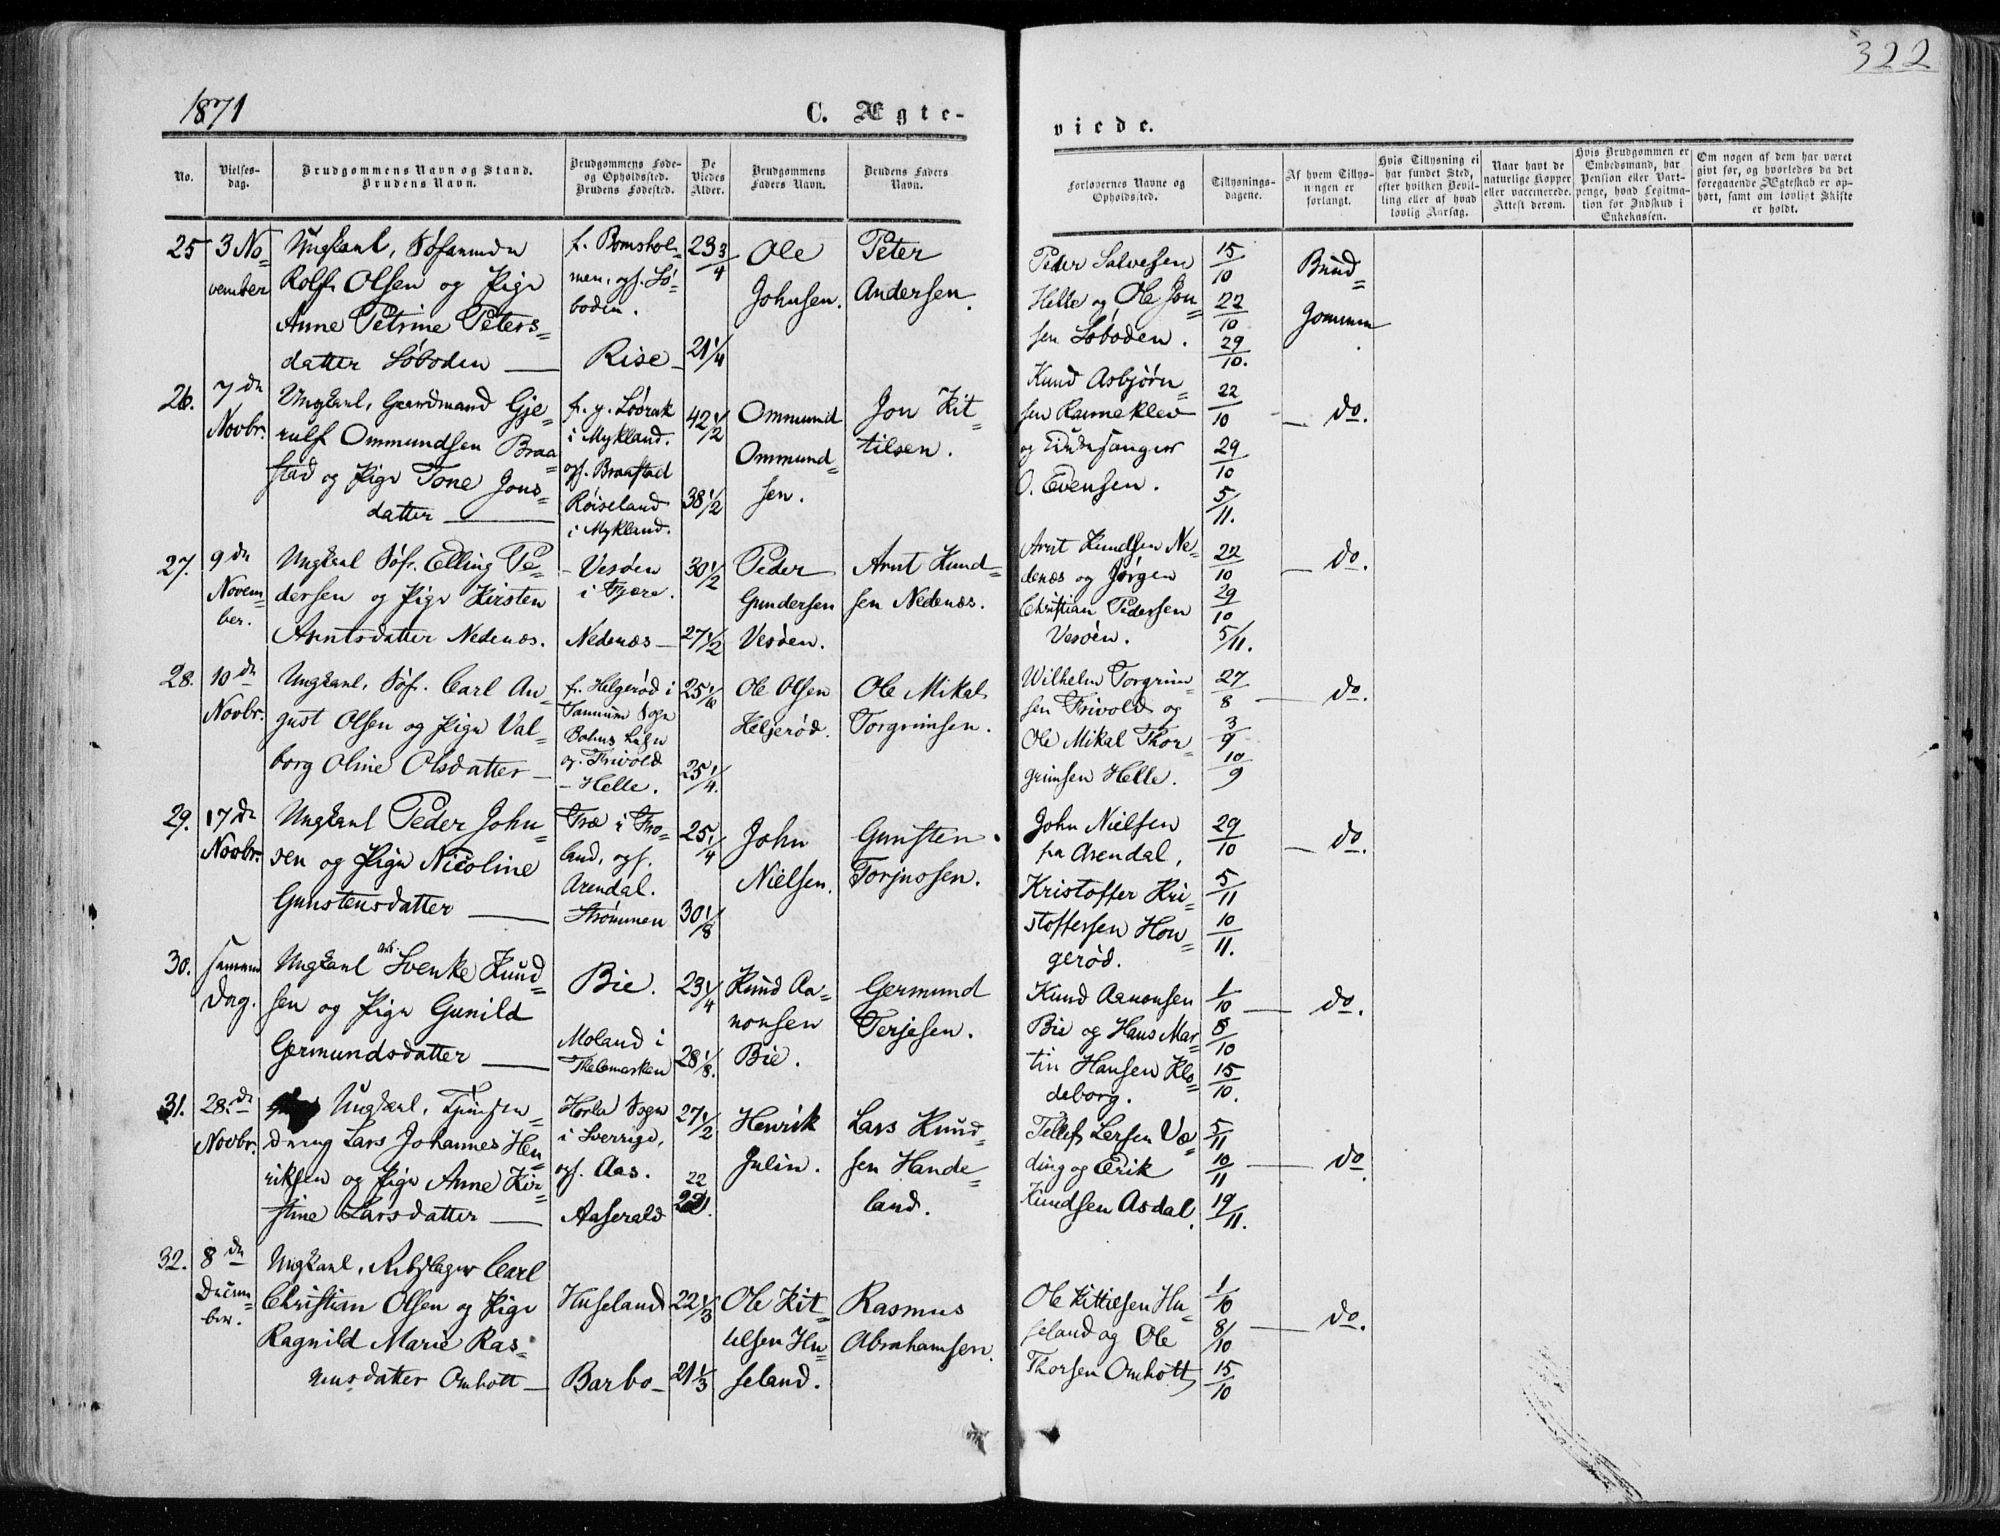 1871
C. Ægte-
viede.
322
No.
Vielses-
dag.
Brudgommens Navn og Stand.
Brudens Navn.
Brudgommens Føde-
og Opholdssted.
Brudens Fødested.
De
Viedes
Alder.
Brudgommens
Faders Navn.
Brudens Faders
Navn.
Forlovernes Navne og
Opholdssted.
Tillysnings-
dagene.
Af hvem Tillys-
ningen er
forlangt.
Hvis Tillysning ei
har fundet Sted,
efter hvilken Bevil-
ling eller af hvad
lovlig Aarsag.
Naar havt de
naturlige Kopper
eller vaccinerede.
Attest derom.
Hvis Brudgommen er
Embedsmand, har
Pension eller Vart-
penge, hvad Legitima-
tion for Indskud i
Enkekassen.
Om nogen af dem har været
givt før, og hvorledes da det
foregaaende Ægteskab er op-
hørt, samt om lovligt Skifte
er holdt.
25
3 No-
vember
Ungkarl, Søfarende
Rolf Olsen og Pige
Anne Petrine Peters-
datter Løboden
f. Bomshol-
men, og. Lø-
boden.
Rise
23 3/4
21 1/4
Ole
Johnsen.
Peter
Andersen.
Peder Salvesen
Helle og Ole Jon-
sen Løboden.
15/10
22/10
29/10.
Brud-
gommen
26.
7de
Novbr.
Ungkarl, Gaardmand Gje-
rulf Ommundsen Braa-
stad og Pige Tone Jons-
datter
i Mykland.
og. Braastad
Røiseland
i Mykland.
42 1/2
38 1/2
Ommund
Ommund-
sen.
Jon Kit-
tilsen.
Knud Asbjørn-
sen Ravneklev
og Kirkesanger
O. Evensen.
22/10
29/10
5/11.
do.
27.
9de
Novem-
ber.
Ungkarl Søf. Elling Pe-
dersen og Pige Kirsten
Arntsdatter Nedenæs.
Vesøen
i Fjære.
Nedenæs
30 1/2
27 1/2
Peder
Gundersen
Vesøen.
Arnt Knud-
sen Nedenæs.
Arnt Knudsen Ne-
denæs og Jørgen
Christian Pedersen
Vesøen.
22/10
29/10
5/11.
do.
28.
10de
Novbr.
Ungkarl, Søf. Carl Au-
gust Olsen og Pige Val-
borg Oline Olsdatter
f. Helgerød i
Tanum Sogn
Bohus Lehn
og. Frivold
Helle.
25 1/6
25 1/4.
Ole Olsen
Helgerød.
Ole Mikal
Torgrimsen.
Wilhelm Torgrim-
sen Frivold og
Ole Mikal Thor-
grimsen Helle.
27/8
3/9
10/9
do.
29.
17de
Novbr.
Ungkarl Peder John-
sen og Pige Nicoline
Gunstensdatter
Træ i Fro-
land, og.
Arendal.
Strømmen
25 1/4
30 1/8
John
Nielsen.
Gunsten
Torjussen.
John Nielsen
fra Arendal,
Kristoffer Kri-
stoffersen Hon-
gerød.
29/10
5/11
10/11.
do.
30.
samme
Dag.
Ungkarl Svenke Knud-
sen og Pige Gunild
Germundsdatter
Bie.
Moland i
Thelemarken
23 1/4
28 1/8.
Knud Aa-
nonsen
Bie.
Germund
Terjesen.
Knud Aanonsen
Bie og Hans Mar-
tin Hansen Klø-
deborg.
1/10
8/10
15/10.
do.
31.
28de
Novbr.
Ungkarl, Tjeneste-
dreng Lars Johannes Hen-
riksen og Pige Anne Kir-
stine Larsdatter
Sogn
i Sverrige,
og. Aas.
Aaserald
27 1/2
22
Henrik
Julin.
Lars Knud-
sen Hande-
land.
Tellef Larsen Væ-
ding og Erik
Knudsen Asdal.
5/11
10/11
19/11.
do.
32.
8de
Decem-
ber.
Ungkarl, Rebslager Carl
Christian Olsen og Pige
Ragnild Marie Ras-
musdatter Omholt
Huseland
Barbo
22 1/3
21 1/3
Ole Kit-
tilsen Hu-
seland.
Rasmus
Abrahamsen.
Ole Kittilsen Hu-
seland og Ole
Thorsen Omholt
1/10
8/10
15/10
do.